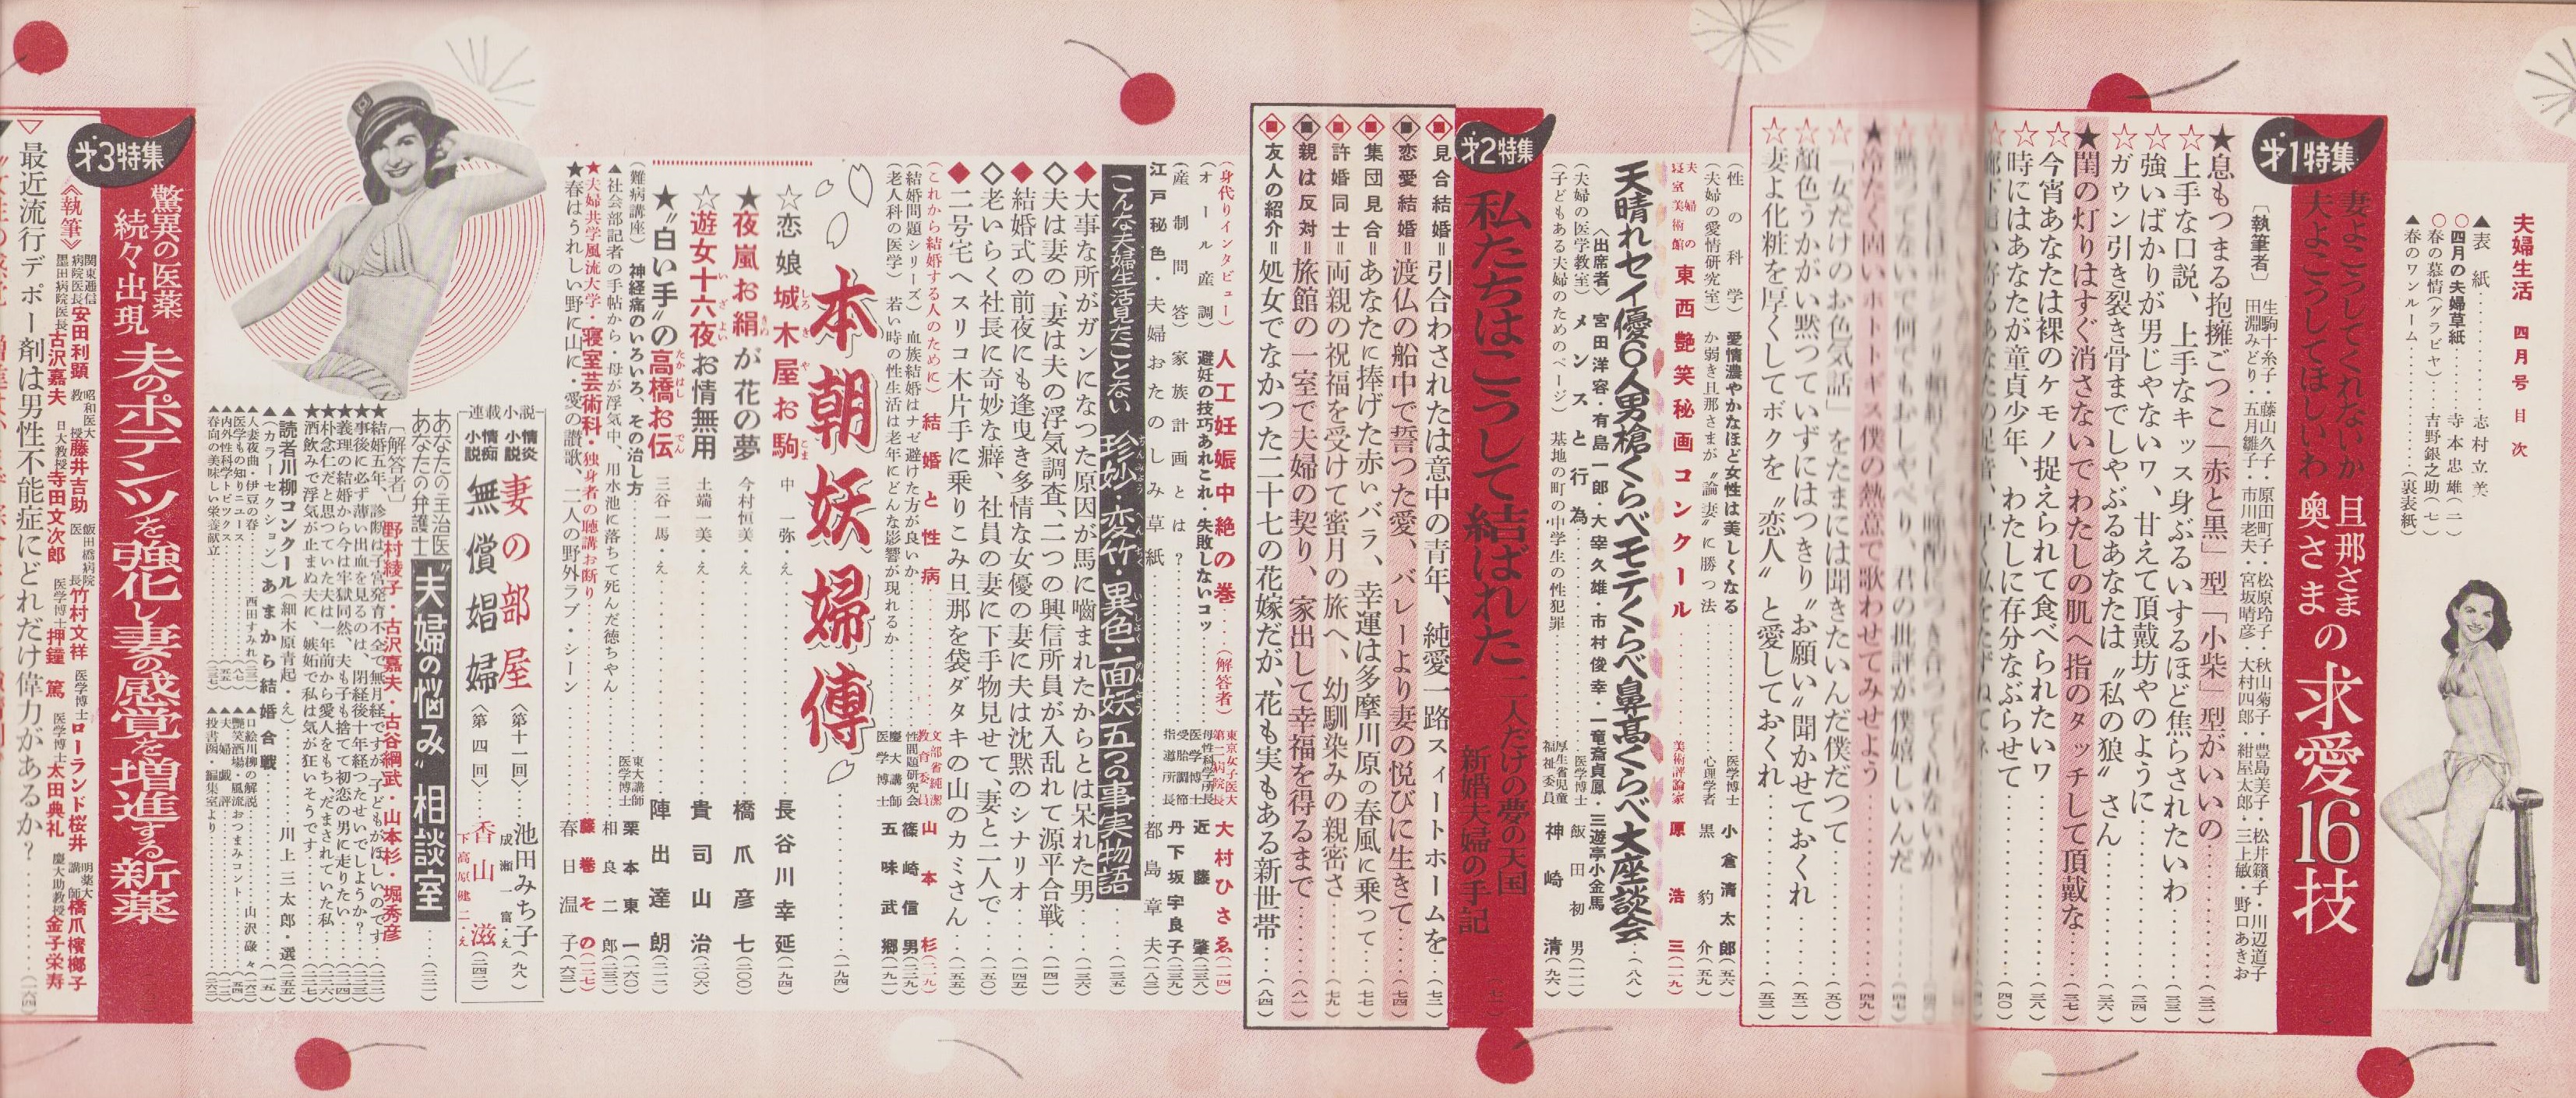 夫婦生活 四月号 目次
▲表紙……志村立美
○四月の夫婦草紙……寺本忠雄(二)
○春の慕情(グラビヤ)……吉野銀之助(七)
▲春のワンルーム……(裏表紙)
才1特集
妻よこうしてくれないか
夫よこうしてほしいわ
旦那さま
奥さまの求愛16技
〔執筆者〕
生駒十糸子・藤山久子・原田町子・松原玲子・秋山菊子・豊島美子・松井籟子・川辺道子
田淵みどり・五月雛子・市川老夫・宮坂晴彦・大村四郎・紺屋太郎・三上敏・野口あきお
★息もつまる抱擁ごつこ「赤と黒」型「小柴」型がいいの……(三二)
☆上手な口説、上手なキッス身ぶるいするほど焦らされたいわ……(三三)
☆強いばかりが男じやないワ、甘えて頂戴坊やのように……(三四)
☆ガウン引き裂き骨までしやぶるあなたは〝私の狼〟さん……(三六)
★閨の灯りはすぐ消さないでわたしの肌へ指のタッチして頂戴な……(三七)
☆今宵あなたは裸のケモノ捉えられて食べられたいワ……(三八)
☆時にはあなたが童貞少年、わたしに存分なぶらせて……(四〇)
★冷たく固いホトトギス僕の熱意で歌わせてみせよう……(四九)
☆「女だけのお色気話」をたまには聞きたいんだ僕だつて……(五〇)
☆顔色うかがい黙つていずにはつきり〝お願い〟聞かせておくれ……(五二)
☆妻よ化粧を厚くしてボクを〝恋人〟と愛しておくれ……(五三)
(性の科学) 愛情濃やかなほど女性は美しくなる……医学博士 小倉清太郎(五六)
(夫婦の愛情研究室) か弱き旦那さまが〝論妻〟に勝つ法……心理学者 黒豹介(五九)
夫婦の寝室美術館 東西艶笑秘画コンクール……美術評論家 原浩三(一九)
天晴れセイ優6人男槍くらべモテくらべ鼻高くらべ大座談会……(八八)
〈出席者〉宮田洋容・有島一郎・大宰久雄・市村俊幸・一竜斎貞鳳・三遊亭小金馬
(夫婦の医学教室) メンスと行為……医学博士 飯田初男
(子どもある夫婦のためのページ) 基地の町の中学生の性犯罪……厚生省児童福祉委員 神崎清(九六)
才2特集
私たちはこうして結ばれた
二人だけの夢の天国
新婚夫婦の手記
見合結婚＝引合わされたは意中の青年、純愛一路スイートホームを……(七二)
恋愛結婚＝渡仏の船中で誓つた愛、バレーより妻の悦びに生きて……(七四)
集団見合＝あなたに捧げた赤いバラ、幸運は多摩川原の春風に乗つて……(七七)
許婚同士＝両親の祝福を受けて蜜月の旅へ、幼馴染みの親密さ……(七九)
親は反対＝旅館の一室で夫婦の契り、家出して幸福を得るまで……(八一)
友人の紹介＝処女でなかつた二十七の花嫁だが、花も実もある新世帯……(八四)
(身代りインタビュー) 人工妊娠中絶の巻……(解答者) 東京女子医大第二病院長 大村ひさゑ(一四)
(オール産調) 避妊の技巧あれこれ・失敗しないコツ……母性科学所長 医学博士 近藤肇(二三八)
(産制問答) 家族計画とは?……受胎調節指導所長 丹下坂宇良子(二三九)
江戸秘色・夫婦おたのしみ草紙……都島章夫(一八三)
こんな夫婦生活見たことない 珍妙・変竹・異色・面妖五つの事実物語……(一三五)
◆大事な所がガンになつた原因が馬に噛まれたからとは呆れた男……(一三六)
◇夫は妻の、妻は夫の浮気調査、二つの興信所員が入乱れて源平合戦……(一四一)
◆結婚式の前夜にも逢曳き多情な女優の妻に夫は沈黙のシナリオ……(一四五)
◇老いらく社長に奇妙な癖、社員の妻に下手物見せて、妻と二人で……(一五〇)
◆二号宅へスリコ木片手に乗りこみ旦那を袋ダタキの山のカミさん……(一五五)
(これから結婚する人のために) 結婚と性病……文部省純潔教育委員 山本杉(二一九)
(結婚問題シリーズ) 血族結婚はナゼ避けた方が良いか……性問題研究会 篠崎信男(二三九)
(老人科の医学) 若い時の性生活は老年にどんな影響が現れるか……慶大講師 医学博士 五味武郷(一九一)
本朝妖婦傳……(一九四)
☆恋娘城木屋お駒 中一弥・え……長谷川幸延(一九四)
★夜嵐お絹が花の夢 今村恒美・え……橋爪彦七(二〇〇)
☆遊女十六夜お情無用 土端一美・え……貴司山治(二〇六)
★〝白い手〟の高橋お伝 三谷一馬・え……陣出達朗(二一二)
(難病講座) 神経痛のいろいろ、その治し方……東大講師 医学博士 栗本東一(二六〇)
▲社会部記者の手帖から・母が浮気中、用水池に落ちて死んだ徳ちやん……相良二郎(二三二)
★夫婦共学風流大学・寝室芸術科・独身者の聴講お断り……藤巻その(二二七)
★春はうれしい野に山に・愛の讃歌、二人の野外ラブ・シーン……春日温子(六三)
連載小説
情炎小説 妻の部屋〈第十一回〉……池田みち子 成瀬一富・え(九八)
情痴小説 無償娼婦〈第四回〉……香山滋 下高原健二・え(二四二)
あなたの主治医
あなたの弁護士 〝夫婦の悩み〟相談室……(三二一)
〔解答者〕野村綾子・古沢嘉夫・古谷綱武・山本杉・堀秀彦
★結婚五年、診断は子宮発育不全で無月経ですが、子どもがほしいのです
★事後に必ず薄い出血を見るのは、閉経後十年経つたせいでしようか?
★義理の結婚から今は牢獄同然、夫も子も捨てて初恋の男に走りたい
★朴念仁だと思つていた夫は一年前から愛人をもち、だまされていた私
★酒飲みで浮気が止まぬ夫に、嫉妬で私は気が狂いそうです
▲読者川柳コンクール(細木原青起・え)……川上三太郎・選
▲(カラーセクション) あまから結婚合戦……(一五)
▲人妻夜曲・伊豆の春……西田すみれ
▲医学もの知りニュース
▲内外性科学トピックス
▲春向の美味しい栄養献立
▲口絵川柳の解説……山沢碌々
▲艶笑酒場・風流おつまみコント
▲夫婦戯評
▲投書函・編集室より
才3特集
驚異の医薬
続々出現 夫のポテンツを強化し妻の感覚を増進する新薬
《執筆》
関東逓信病院医長 安田利顕 昭和医大教授 藤井吉助 飯田橋病院長 竹村文祥 医学博士 ローランド桜井 明薬大講師 橋爪檳榔子
墨田病院医長 古沢嘉夫 日大教授 寺田文次郎 医学博士 押鐘篤 医学博士 太田典礼 慶大助教授 金子栄寿
▽最近流行デポー剤は男性不能症にどれだけ偉力があるか?……(一六四)